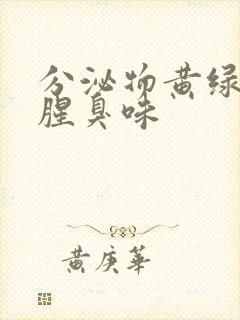 分泌物黄绿
腥臭味
黄庚华